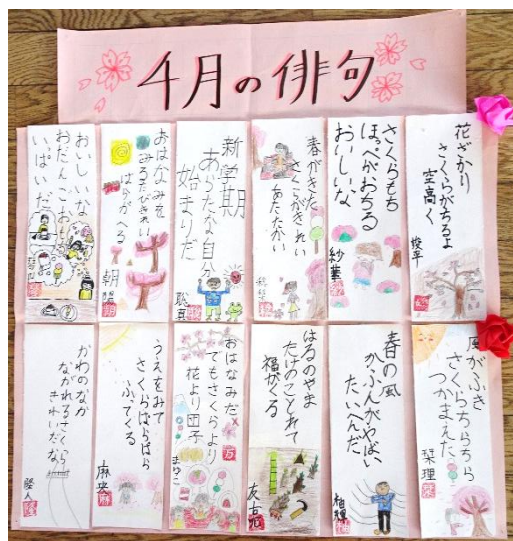 4月の俳句
花ざかり
さくらがちるよ
空高く
俊平
さくらもち
ほっぺがおちる
おいしいな
紗華
春がきた
さくらがきれい
あたたかい
新学期
あらたな自分
始まりだ
聡真
おはなみを
みるときれい
はらがへる
朝陽
おいしいな
おだんごおもち
いっぱいだ
風がふき
さくらちらちら
つかまえた
栞理
春の風
かふんがやばい
たいへんだ
柚耀
はるのやま
たけのことれて
福がくる
友吉
おはなみだ
でもさくらより
花より団子
まゆこ
うえをみて
さくらばらばら
ふってくる
麻央
かわのなか
ながれるさくら
きれいだな